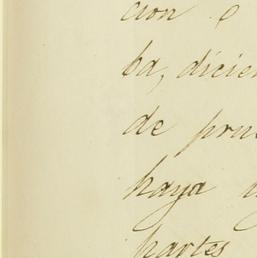 cion
ba, dicien
de prue
haya
partes